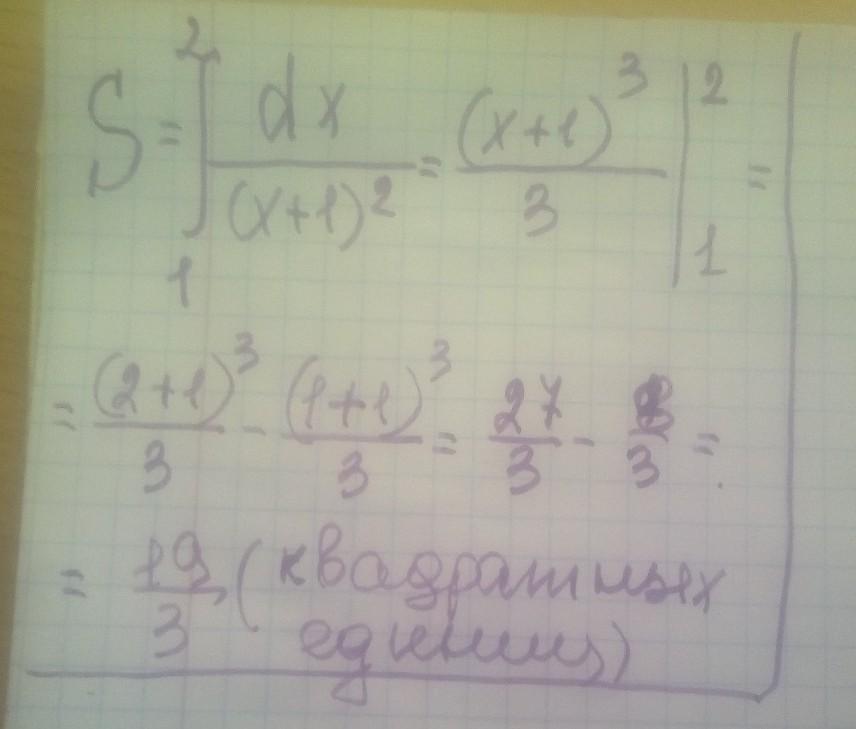 S = ∫₁² dx/(x+1)² = (x+1)³/3 |₁² =
= (2+1)³/3 - (1+1)³/3 = 27/3 - 8/3 =
= 19/3 (квадратных
единиц)